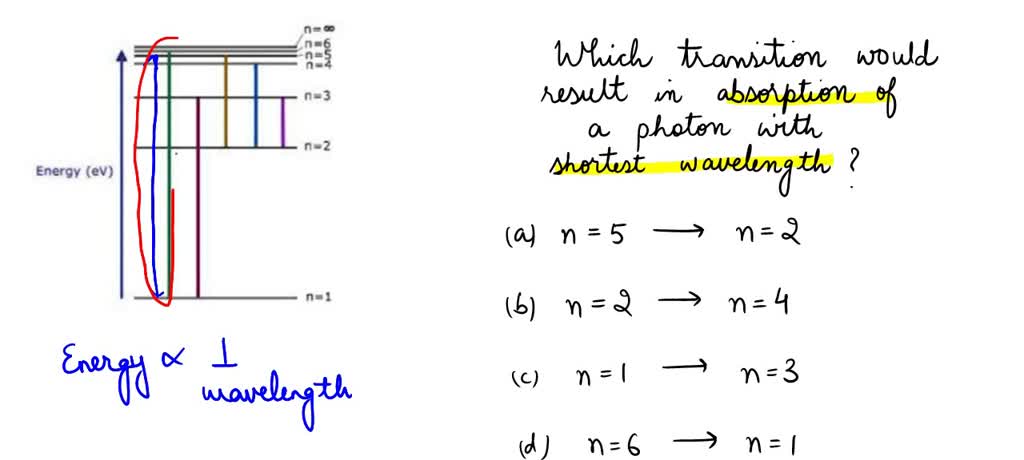 n=∞
n=6
n=5
n=4
n=3
n=2
Energy (eV)
n=1
Energy ∝ 1
wavelength
Which transition would
result in absorption of
a photon with
shortest wavelength ?
(a) n = 5 → n = 2
(b) n = 2 → n = 4
(c) n = 1 → n = 3
(d) n = 6 → n = 1